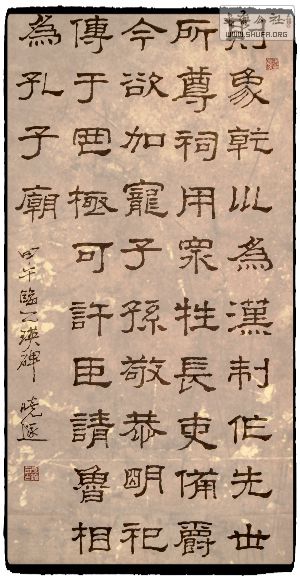 則象乾以為漢制作先世
所尊祠用眾牲長吏備爵
今欲加寵子孫敬恭明祀
傳于罔極可許臣請魯相
為孔子廟
甲午臨乙瑛碑 曉
公社
WWW.SHUFA.ORG